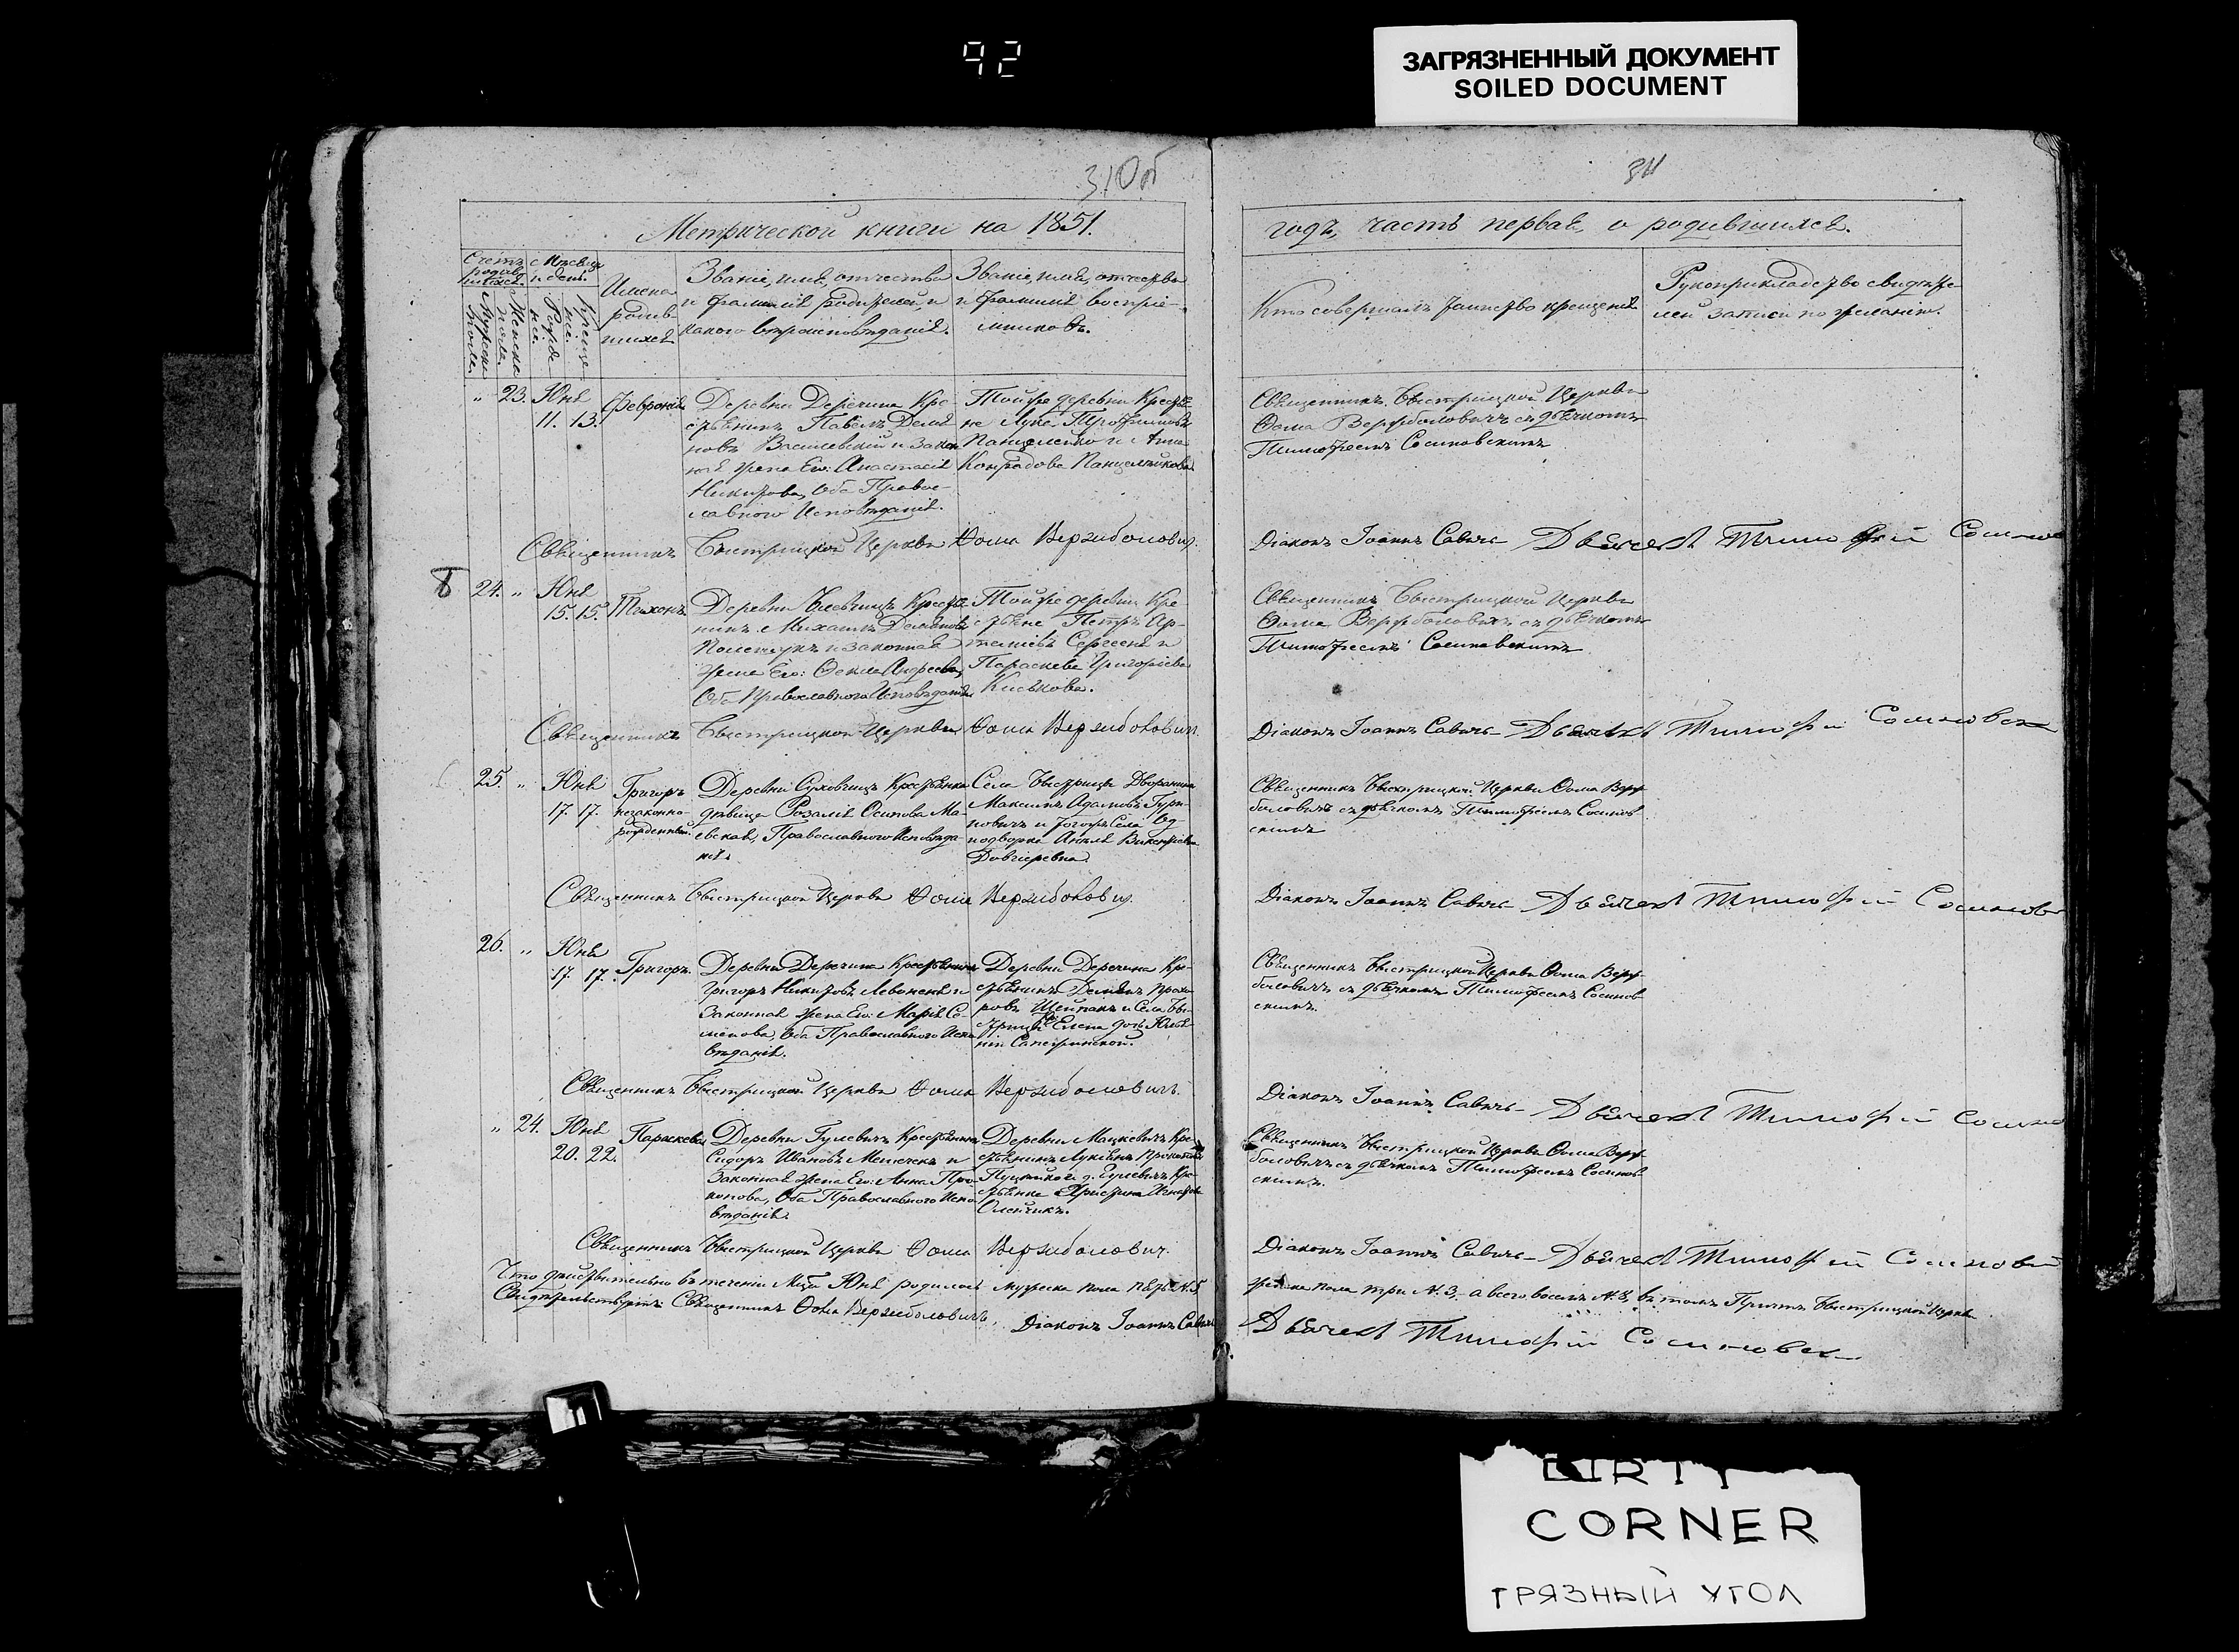 92
ЗАГРЯЗНЕННЫЙ ДОКУМЕНТ
SOILED DOCUMENT
31об
Метрической книги на 1851.
годъ, часть первая, о родившихся.
Счетъ родившихся.
Мужеска пола.
Женска пола.
Месяцъ и день.
Рожденіе.
Крещеніе.
Имена родившихся
Званіе, имя, отчество
и фамилія родителей, и
какого вѣроисповѣданія.
Званіе, имя, отчество
и фамилія воспріе-
мниковъ.
Кто совершалъ таинство крещенія
Рукоприкладство свидѣте-
лей записи по желанію.
" 23. Юня
11. 13.
Февронія
Деревни Деречина Кре-
стьянинъ Павелъ Демья
новъ Василевскій и закон
ная жена Его: Анастасія
Никитова, Оба Право-
славного Исповѣданія.
Тойже деревни Крестья
не Лука Трофимовъ
и Анна
Кондрадова
Священникъ Быстрицкой Церкви
Ѳома Вержболовичъ съ дьячкомъ
Тимофеемъ Сосиновскимъ
Священникъ Быстрицкой Церкви Ѳома Вержболовичъ.
Діаконъ Іоаннъ Савичъ Дьячекъ Тимофей
24. " Юня
15. 15.
Тихонъ
Деревни Крестья
нинъ Михаилъ Демьяновъ
Полещукъ и законная
жена Его: Ѳекла Андреева,
Оба Православного Исповѣданія
Тойже деревни Кре-
стьяне Петръ Ар-
темьевъ Сергееня и
Параскева Григорьева
Киськова.
Священникъ Быстрицкой Церкви
Ѳома Вержболовичъ съ дьячкомъ
Тимофеемъ Сосиновскимъ
Священникъ Быстрицкой Церкви Ѳома Вержболовичъ
Діаконъ Іоаннъ Савичъ Дьячекъ Тимофей Сосиновск
25. " Юня
17. 17.
Григоръ
незаконно-
рожденный.
Деревни Суховчицъ Крестьянка
дѣвица Розалія Осипова Ма-
евская, Православного Исповѣда-
нія.
Села Быстрицы Дворянинъ
Максимъ Адамовъ Гури-
новичъ и тогожъ Села Од-
нодворка Анеля Викентіева
Довгіеревна.
Священникъ Быстрицкой Церкви Ѳома Верж-
боловичъ съ дьячкомъ Тимофеемъ Сосинов-
скимъ
Священникъ Быстрицкой Церкви Ѳома Вержболовичъ.
Діаконъ Іоаннъ Савичъ Дьячекъ Тимофей Сосинов
26. " Юня
17. 17.
Григоръ.
Деревни Деречина Крестьянинъ
Григоръ Никитовъ Левоненя и
Законная жена Его: Марія Се-
менова, Оба Православного Испо-
вѣданія.
Деревни Деречина Кре-
стьянинъ Демьянъ Прохо
ровъ и Села Бы-
стрицы Елена дочь
Священникъ Быстрицкой Церкви Ѳома Верж-
боловичъ съ дьячкомъ Тимофеемъ Сосинов-
скимъ.
Священникъ Быстрицкой Церкви Ѳома Вержболовичъ.
Діаконъ Іоаннъ Савичъ Дьячекъ Тимофей
" 24. Юня
20. 22.
Параскева
Деревни Гулевичъ Крестьянинъ
Сидоръ Ивановъ и
Законная жена Его: Анна Про-
копова, Оба Православного Испо-
вѣданія.
Деревни Мацкевичъ Кре-
стьянинъ
и д. Гулевичъ Кре-
стьянка Христина Игнатова
Олейчикъ.
Священникъ Быстрицкой Церкви Ѳома Верж-
боловичъ съ дьячкомъ Тимофеемъ Сосинов-
скимъ.
Священникъ Быстрицкой Церкви Ѳома Вержболовичъ.
Діаконъ Іоаннъ Савичъ Дьячекъ Тимофей
Что дѣйствительно въ теченіи Мца Юня родилось мужеска пола пять N.5,
женска пола три N.3, а всего восемь N.8, въ томъ Причтъ Быстрицкой Церкви
Свидѣтельствуетъ: Священникъ Ѳома Вержболовичъ, Діаконъ Іоаннъ Савичъ
Дьячекъ Тимофей Сосиновск
DIRTY
CORNER
ГРЯЗНЫЙ УГОЛ